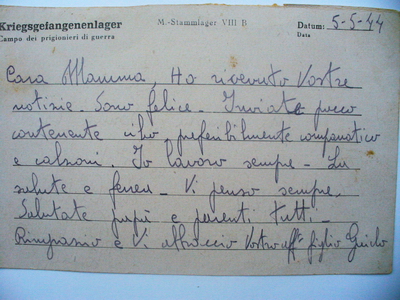 Kriegsgefangenenlager
Campo dei prigionieri di guerra
M.-Stammlager VIII B
Datum: 5-5-44
Data
Cara Mamma, Ho ricevuto Vostre
notizie. Sono felice. Inviate pacco
contenente cibo, preferibilmente companatico
e calzoni. Io lavoro sempre - La
salute e ferrea - Vi penso sempre.
Salutate papà e parenti tutti -
Ringrazio e Vi abbraccio Vostro aff. figlio Guido